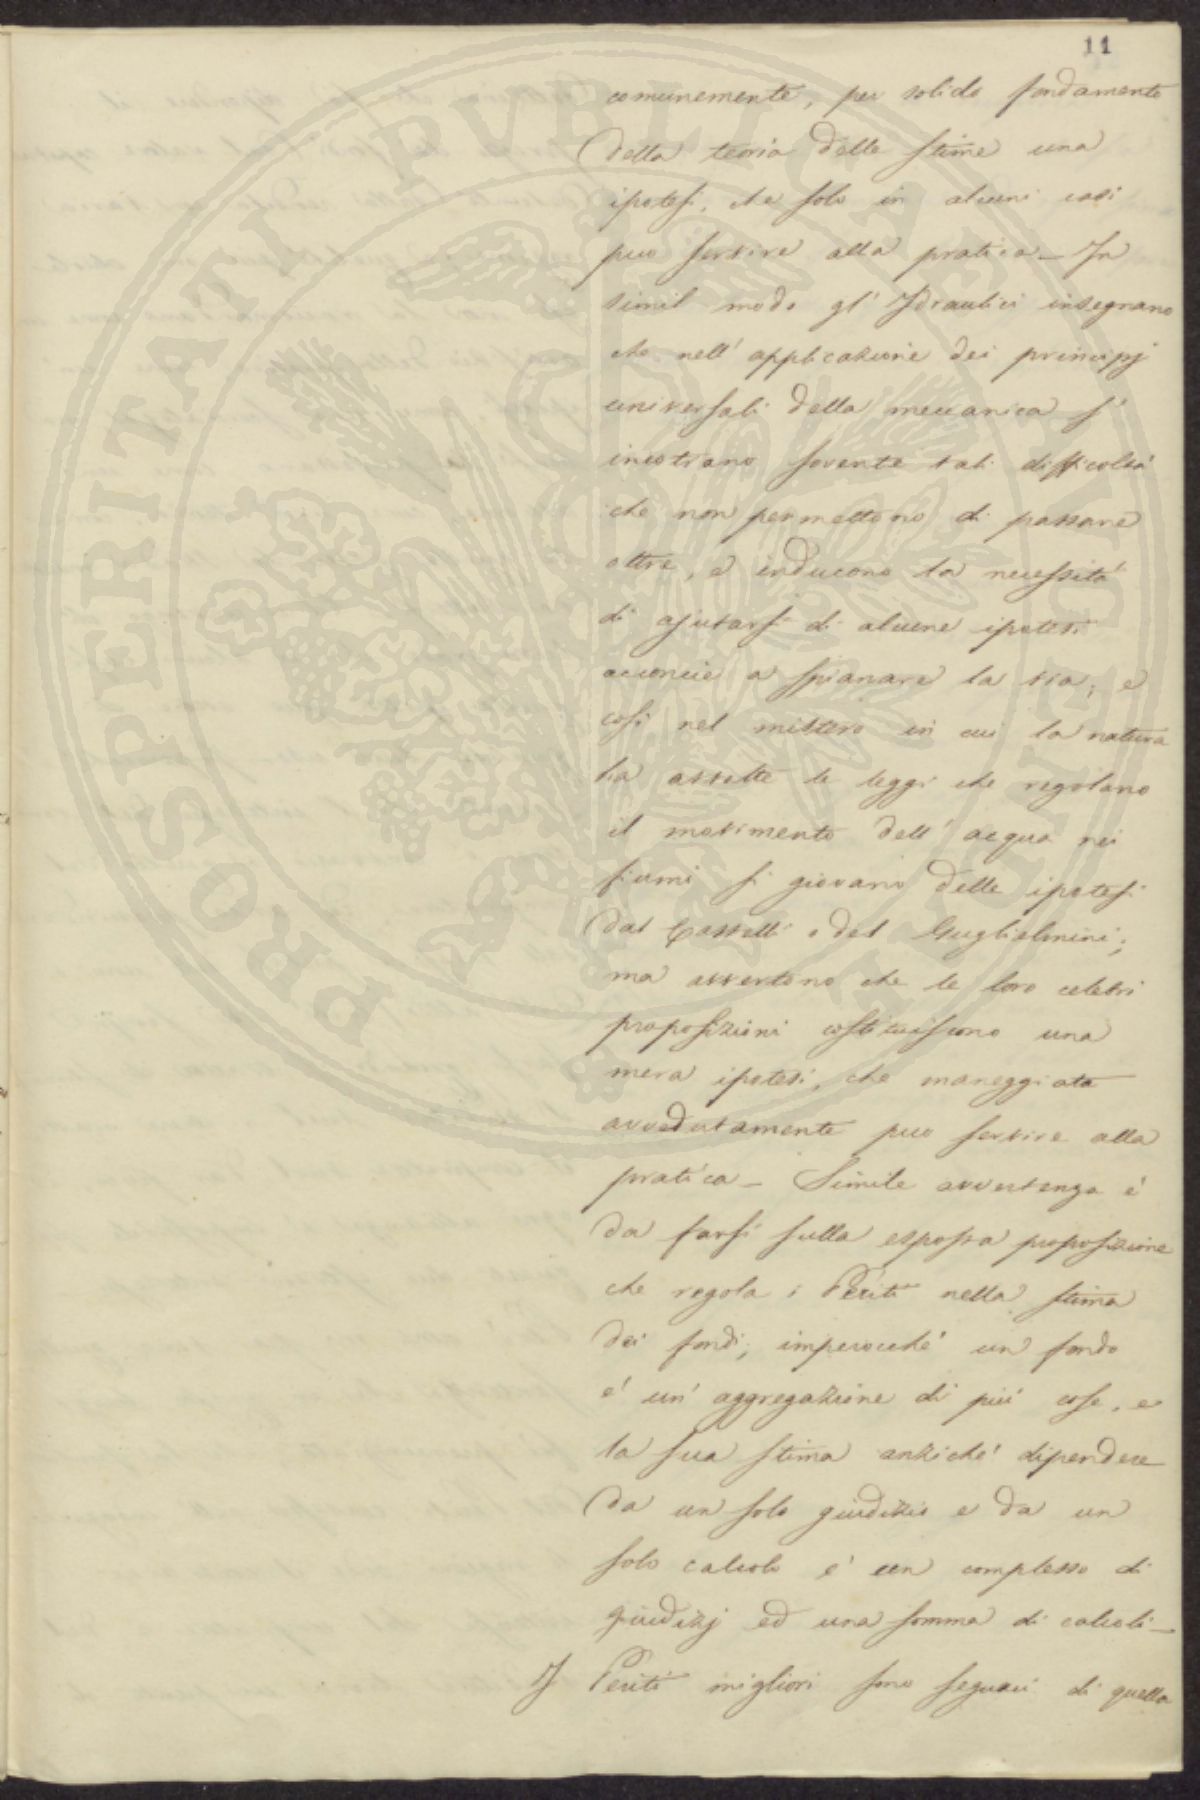 11
comunemente, per solido fondamento
della teoria delle stime una
ipotesi, che solo in alcuni casi
può servire alla pratica_ In
simil modo gl' Idraulici insegnano
che nell' applicazione dei principj
universali della meccanica s'
incontrano sovente tali difficoltà
che non permettono di passare
oltre, e inducono la necessità
di ajutarsi di alcune ipotesi
acconcie a spianare la via; e
così nel mistero in cui la natura
ha avvolte le leggi che regolano
il movimento dell' acqua nei
fiumi si giovano delle ipotesi
dal Castelli o del Guglielmini;
ma avvertono che le loro celebri
proposizioni costituiscono una
mera ipotesi, che maneggiata
avvedutamente può servire alla
pratica_ Simile avvertenza è
da farsi sulla esposta proposizione
che regola i Periti nella stima
dei fondi; imperocché un fondo
è un' aggregazione di più cose, e
la sua stima anziché dipendere
da un solo giudizio e da un
solo calcolo è un complesso di
giudizj ed una somma di calcoli_
I Periti migliori sono seguaci di quella
PROSPERITATI PVBLICAE